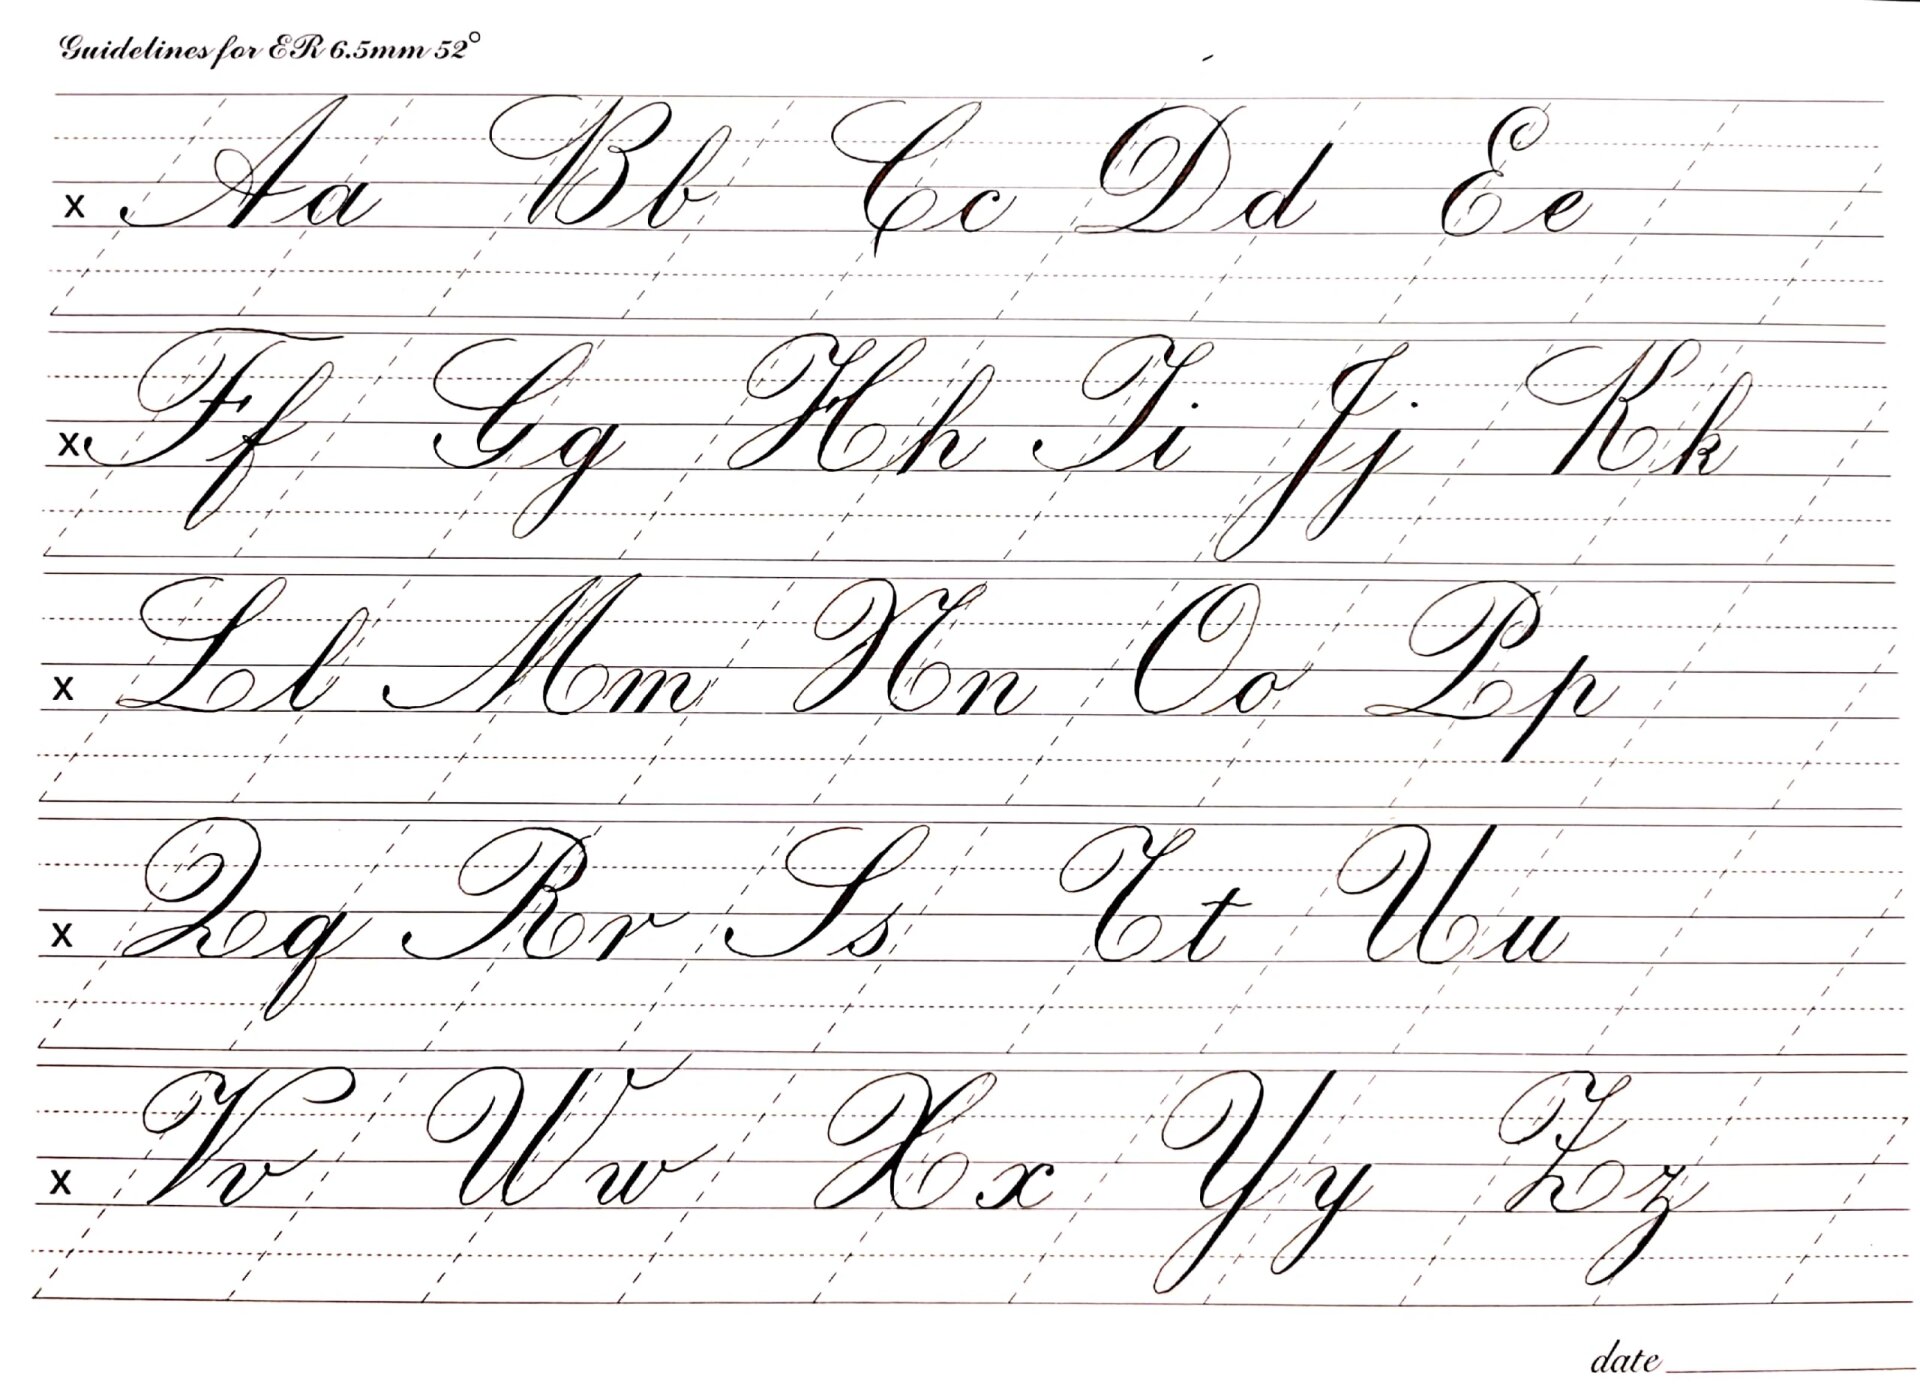 Guidelines for ER 6.5mm 52°
x Aa Bb Cc Dd Ee
x Ff Gg Hh Ii Jj Kk
x Ll Mm Nn Oo Pp
x Qq Rr Ss Tt Uu
x Vv Ww Xx Yy Zz
date